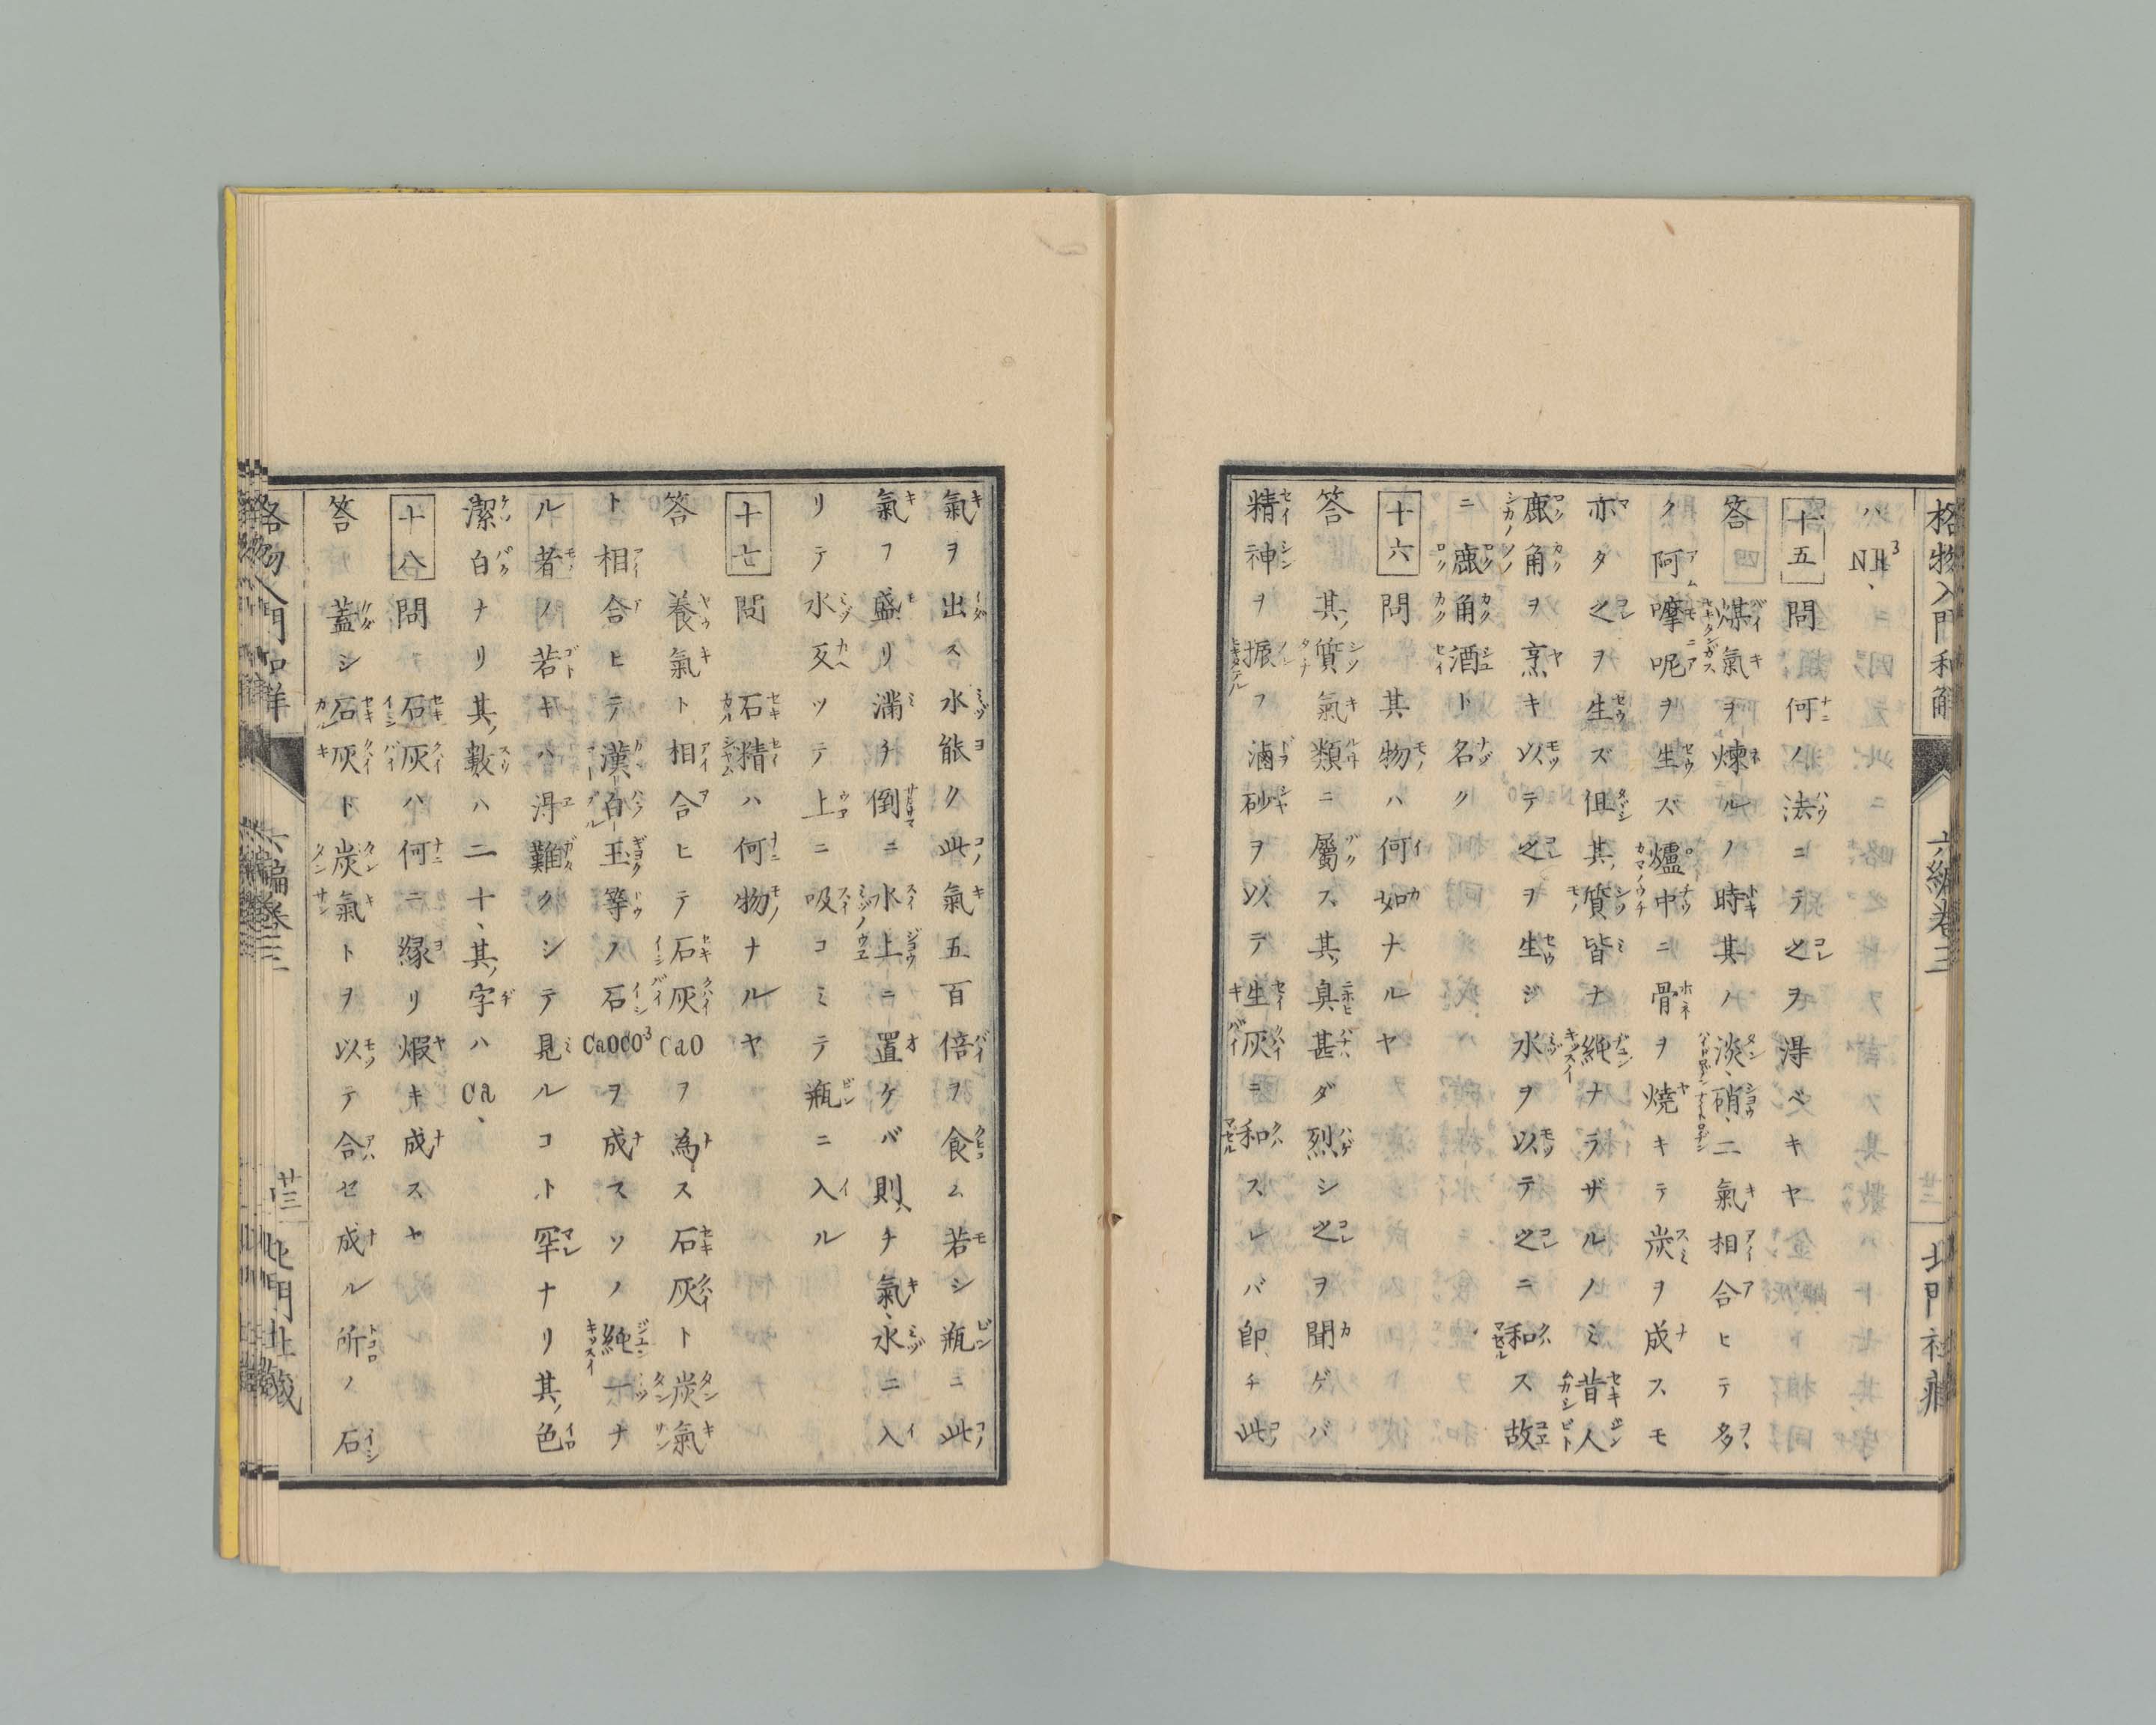 格物入門和解
六編卷三
北門社藏
ハNH3、
十五 問 何ノ法ニテ之ヲ得ベキヤ
答 煤氣ヲ煉ルノ時其ノ淡、硝、二氣相合ヒテ多
ク阿嚤呢ヲ生ス爐中ニ骨ヲ燒キテ炭ヲ成スモ
亦タ之ヲ生ズ伹其ノ質皆ナ純ナラザルノミ昔人
鹿角ヲ烹キ以テ之ヲ生ジ水ヲ以テ之ニ和ス故
ニ鹿角酒ト名ク
十六 問 其物ハ何如ナルヤ
答 其ノ質氣類ニ屬ス其ノ臭甚ダ烈シ之ヲ聞ゲバ
精神ヲ振フ滷砂ヲ以テ生灰ニ和スレバ卽チ此
氣ヲ出ス水能ク此氣五百倍ヲ食ム若シ瓶ニ此
氣フ盛リ滿チ倒ニ水上ニ置ケバ則チ氣、水ニ入
リテ水反ツテ上ニ吸コミテ瓶ニ入ル
十七 問 石精ハ何物ナルヤ
答 養氣ト相合ヒテ石灰CaOヲ為ス石灰ト炭氣
ト相合ヒテ漢白玉等ノ石CaOCO3ヲ成スソノ純一ナ
ル者ノ若キハ得難クシテ見ルコト罕ナリ其ノ色
潔白ナリ其ノ數ハ二十、其ノ字ハCa、
十八 問 石灰ハ何ニ緣リ煆キ成スヤ
答 蓋シ石灰ト炭氣トヲ以テ合セ成ル所ノ石
格物入門和解
六編卷三
廿三
北門社藏